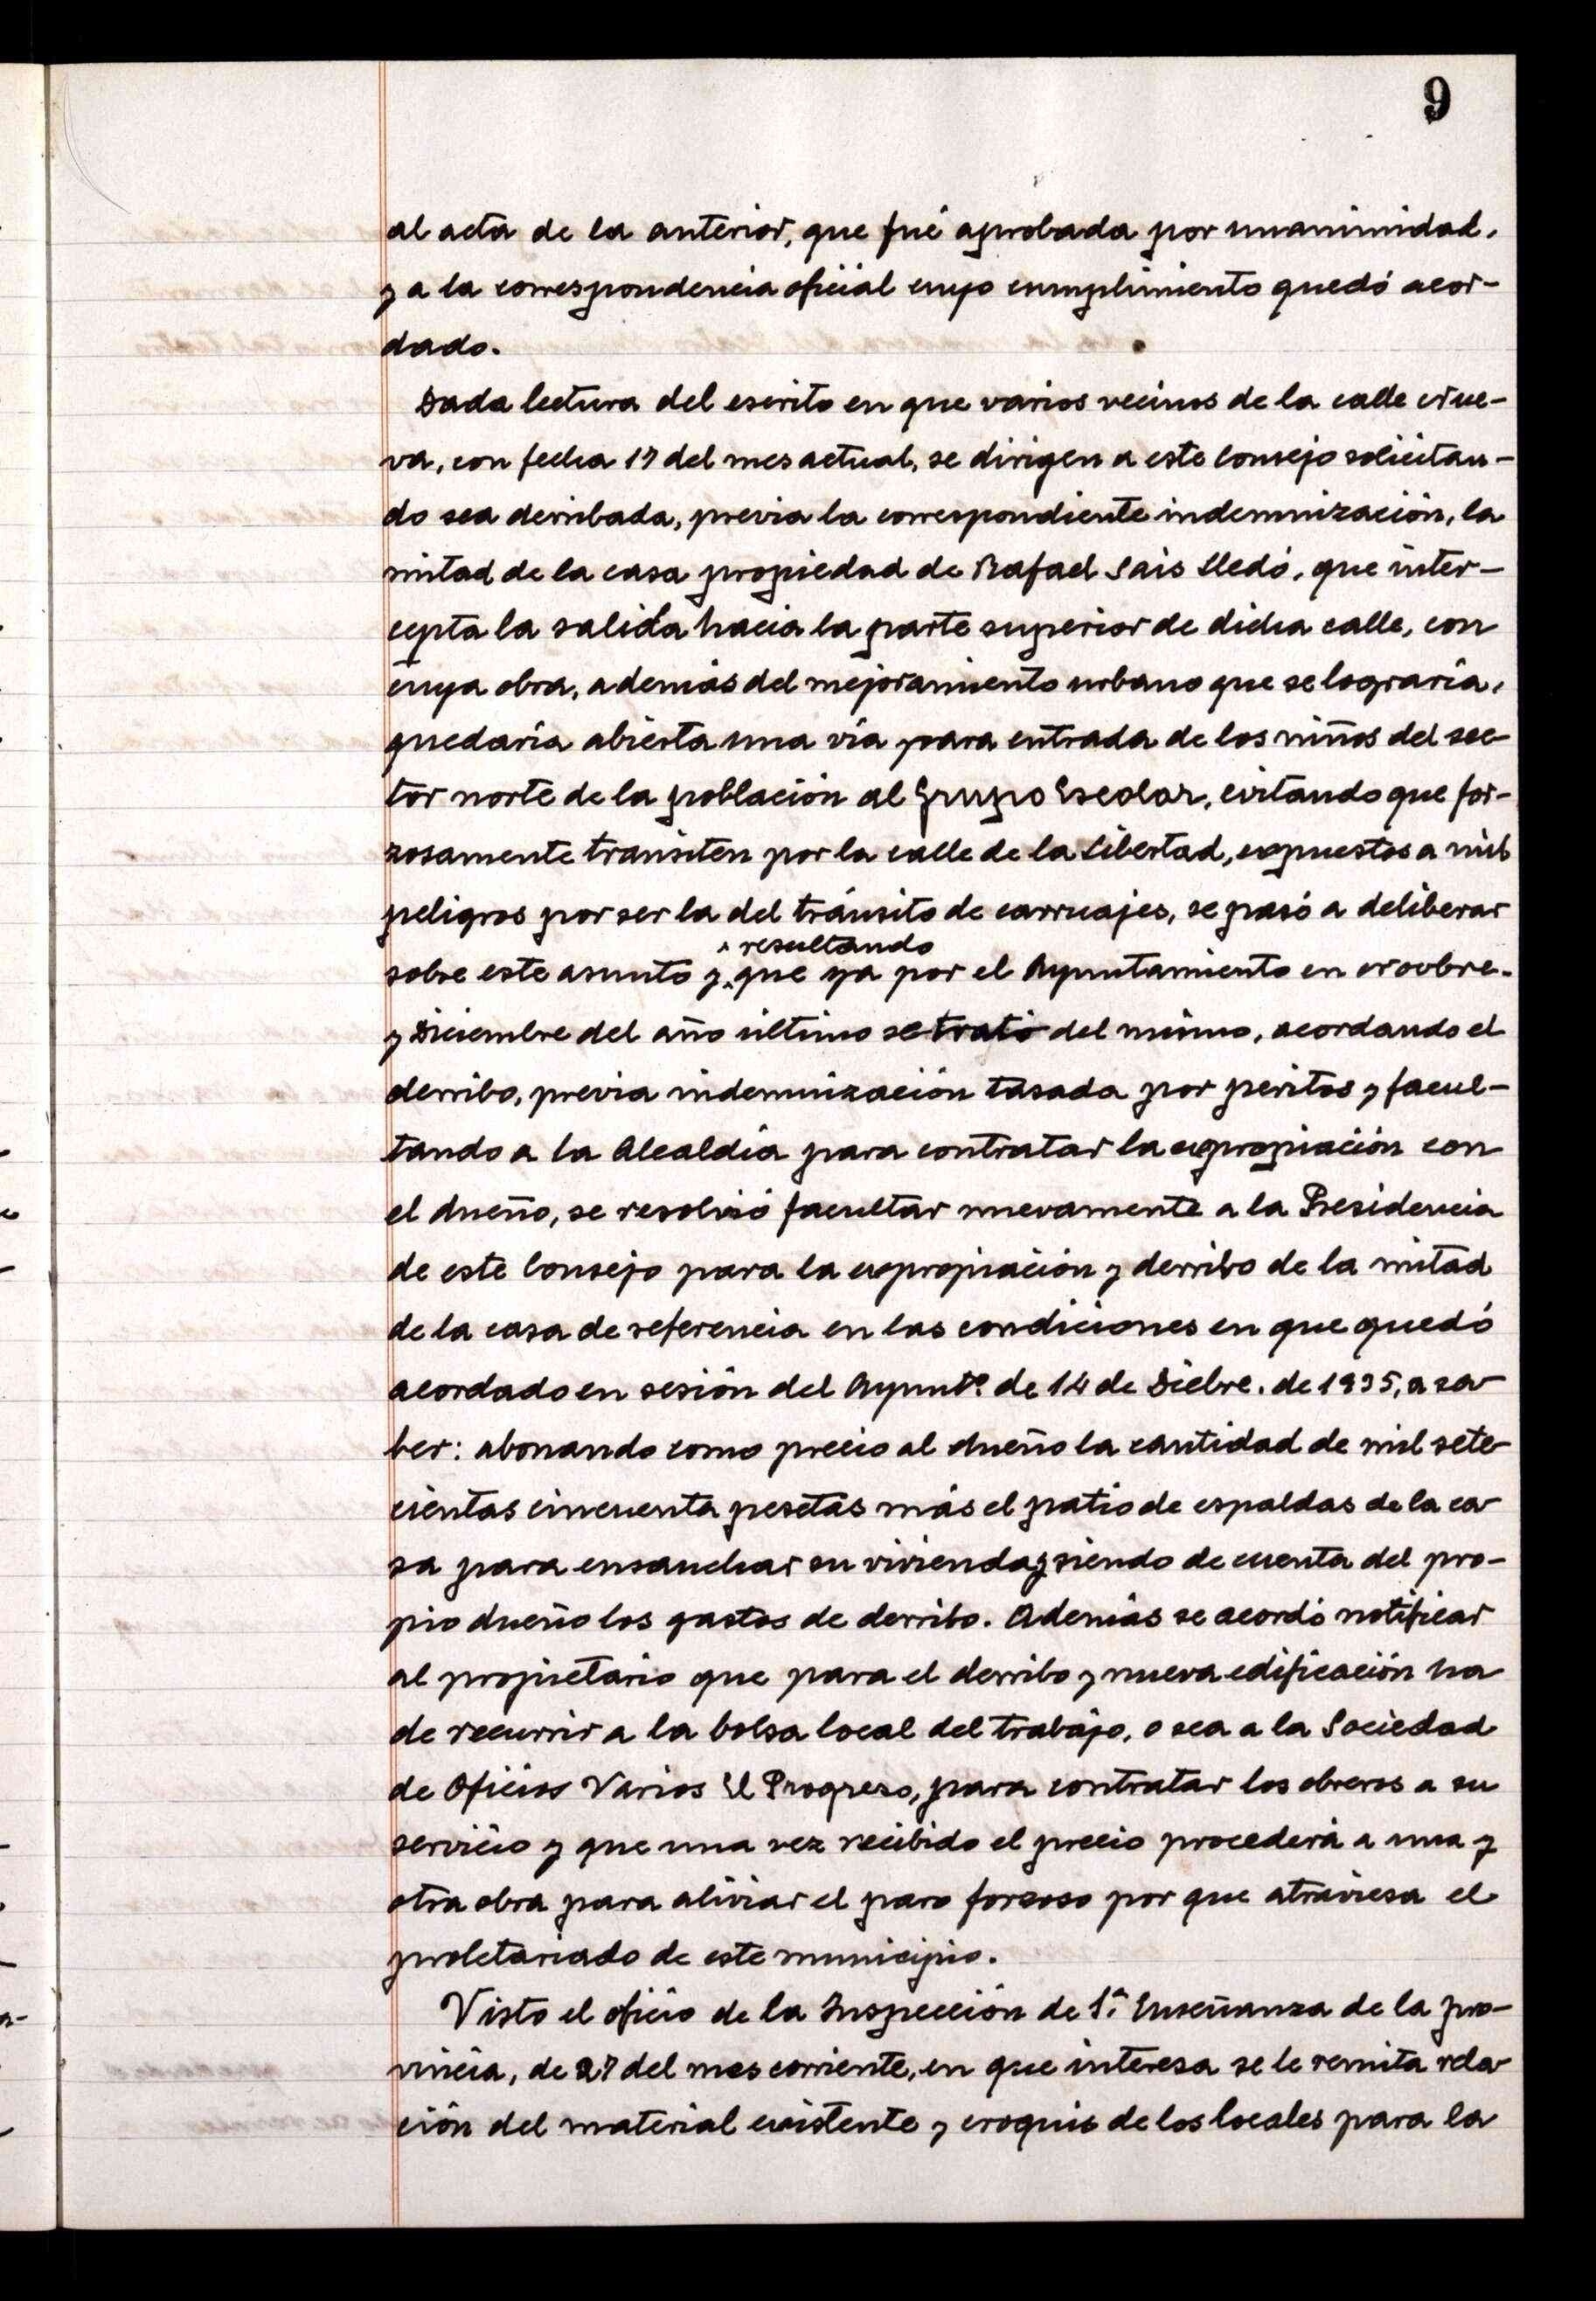 9
al acta de la anterior, que fué aprobada por unanimidad,
y a la correspondencia oficial cuyo cumplimiento quedó acor-
dado.
Dada lectura del escrito en que varios vecinos de la calle Nue-
va, con fecha 17 del mes actual, se dirigen a este Consejo solicitan-
do sea derribada, previa la correspondiente indemnización, la
mitad de la casa propiedad de Rafael Sais Lledó, que inter-
cepta la salida hacia la parte superior de dicha calle, con
cuya obra, además del mejoramiento urbano que se lograría,
quedaría abierta una vía para entrada de los niños del sec-
tor norte de la población al Grupo Escolar, evitando que for-
zosamente transiten por la calle de la Libertad, expuestos a mil
peligros por ser la del tránsito de carruajes, se pasó a deliberar
resultando
sobre este asunto y que ya por el Ayuntamiento en Novbre.
y Diciembre del año último se trató del mismo, acordando el
derribo, previa indemnización tasada por peritos y facul-
tando a la Alcaldía para contratar la expropiación con
el dueño, se resolvió facultar nuevamente a la Presidencia
de este Consejo para la expropiación y derribo de la mitad
de la casa de referencia en las condiciones en que quedó
acordado en sesión del Ayuntº de 14 de Dicbre. de 1935, a sa-
ber: abonando como precio al dueño la cantidad de mil sete-
cientas cincuenta pesetas más el patio de espaldas de la ca-
sa para ensanchar su vivienda y siendo de cuenta del pro-
pio dueño los gastos de derribo. Además se acordó notificar
al propietario que para el derribo y nueva edificación ha
de recurrir a la bolsa local del trabajo, o sea a la Sociedad
de Oficios Varios El Progreso, para contratar los obreros a su
servicio y que una vez recibido el precio procederá a una y
otra obra para aliviar el paro forzoso por que atraviesa el
proletariado de este municipio.
Visto el oficio de la Inspección de 1ª Enseñanza de la pro-
vincia, de 27 del mes corriente, en que interesa se le remita rela-
ción del material existente y croquis de los locales para la